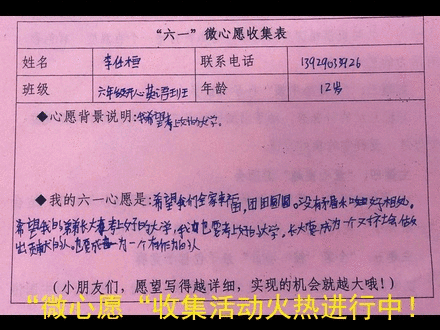 “六一”微心愿收集表
姓名 李仕桓 联系电话 13929039926
班级 六年级开心英语到班 年龄 12岁
◆心愿背景说明:我希望考上好的大学。
◆我的六一心愿是:希望我们全家幸福,团团圆圆。没有矛盾,好好相处。
希望我的弟弟长大要考上好的大学,我也要考上好的大学,长大要成为一个对社会做
出贡献的人。也要成为一个有作为的人
(小朋友们,愿望写得越详细,实现的机会就越大哦!)
“微心愿“收集活动火热进行中!